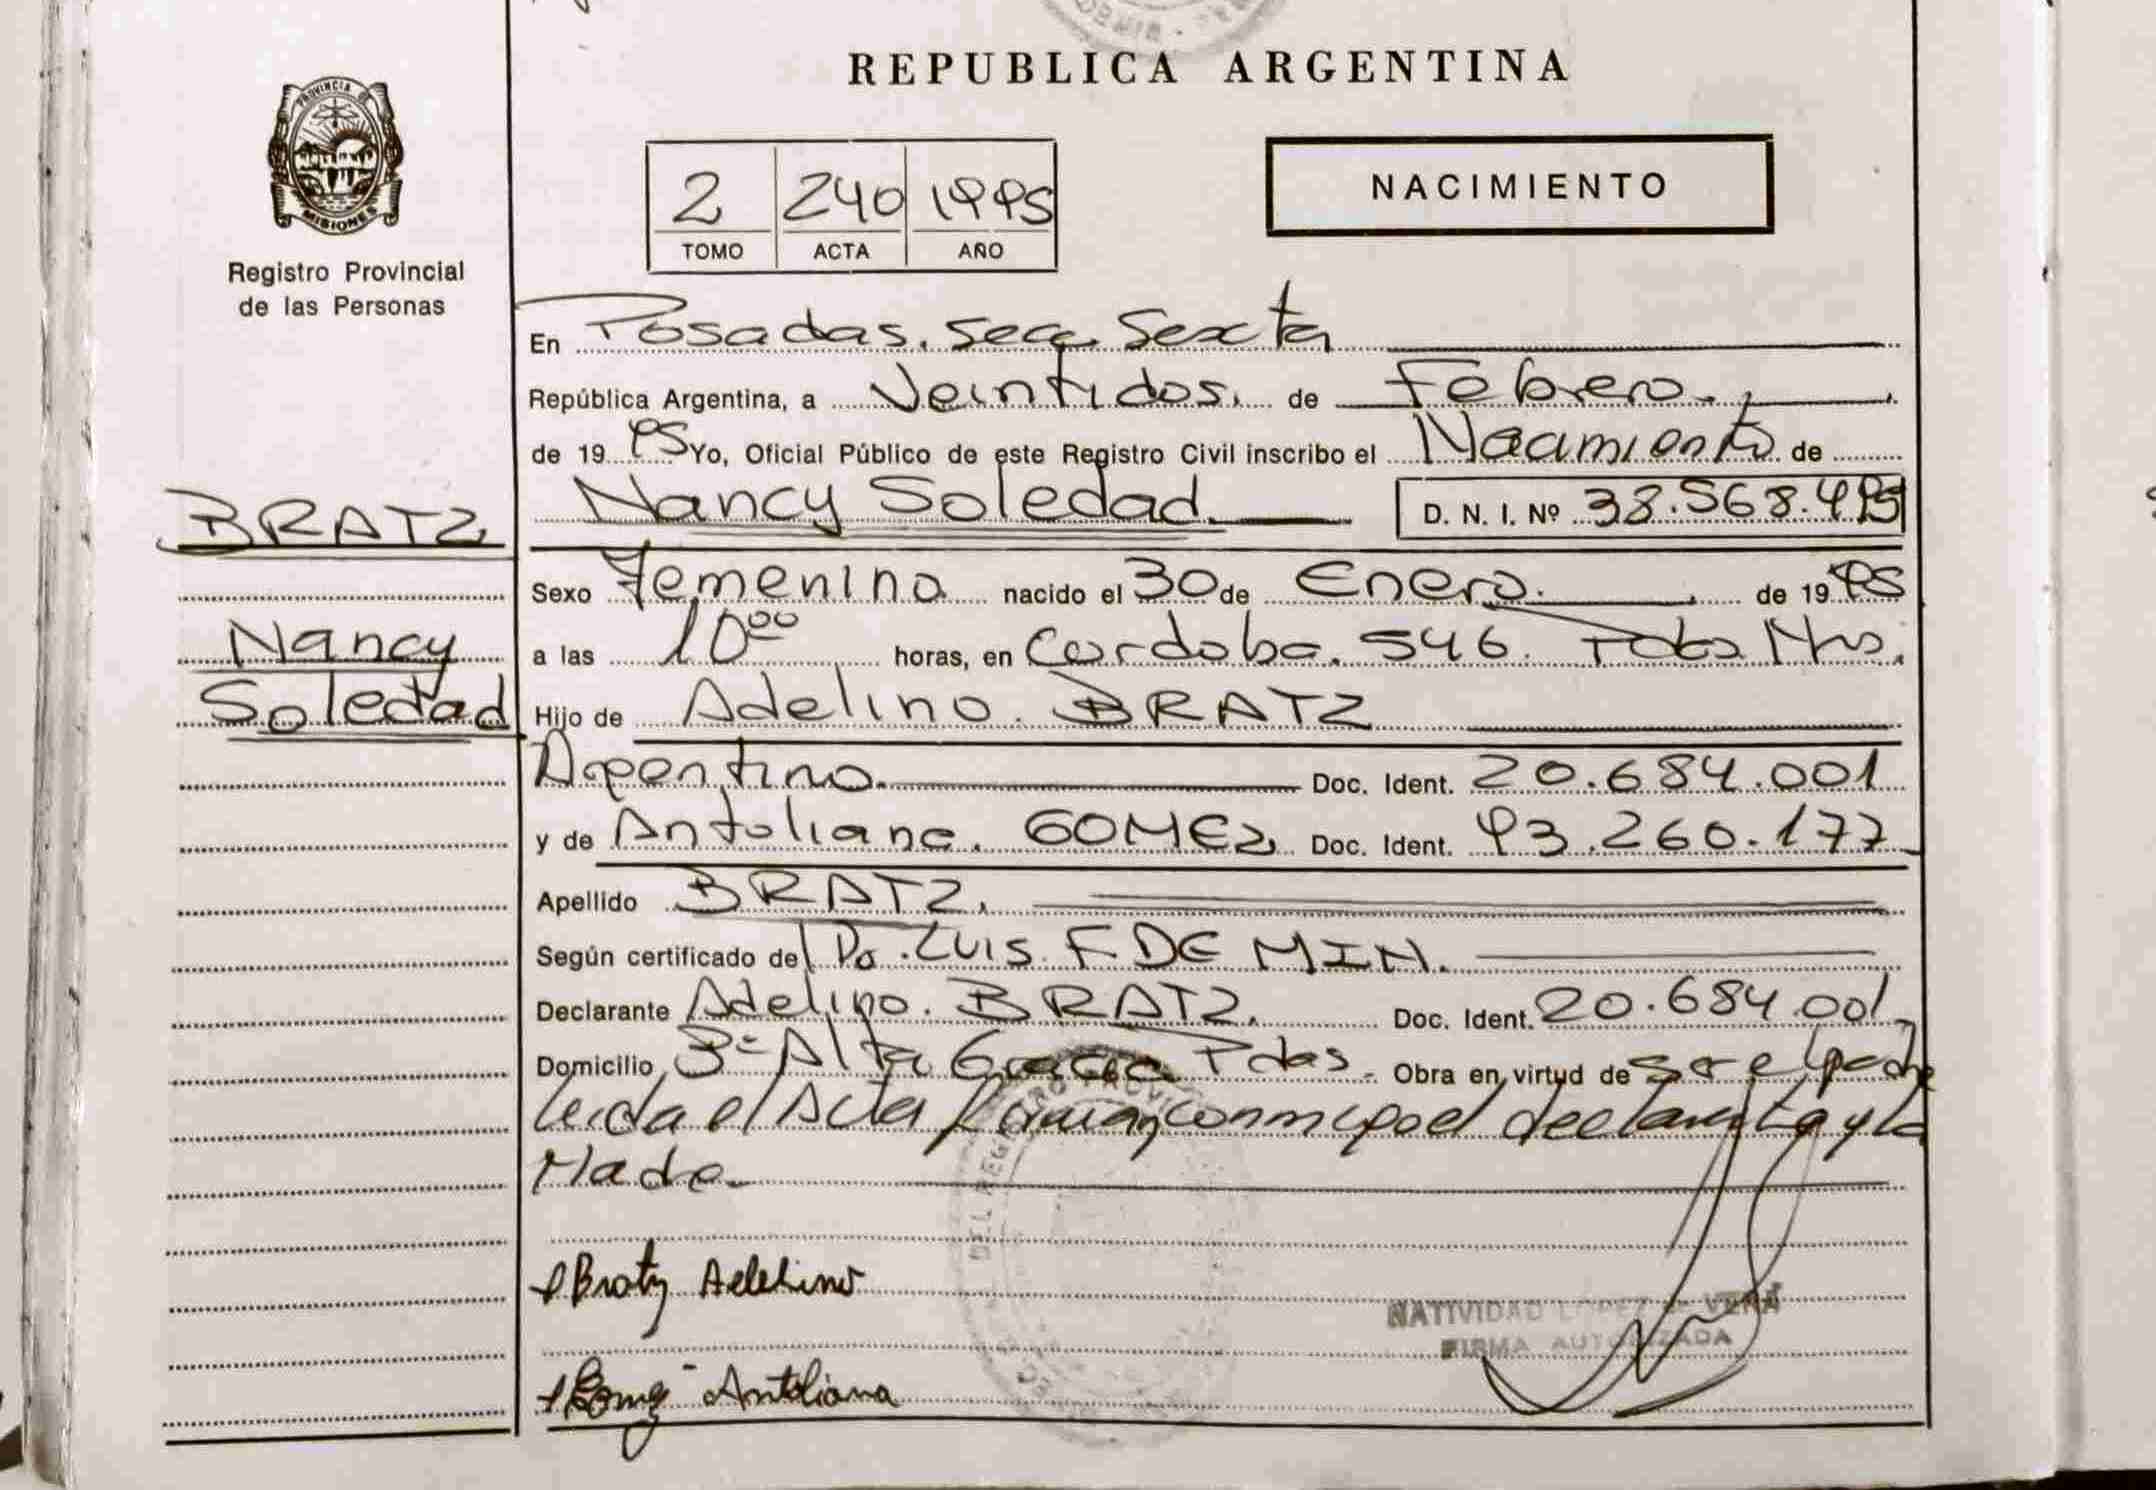 REPUBLICA ARGENTINA
PROVINCIA DE
MISIONES
Registro Provincial
de las Personas
2 240 1995
TOMO ACTA AÑO
NACIMIENTO
En Posadas. Secc Sexta
República Argentina, a Veintidos. de Febrero.
de 19 95 Yo, Oficial Público de este Registro Civil inscribo el Nacimiento de
Nancy Soledad D. N. I. Nº 38.568.495
BRATZ
Nancy
Soledad
Sexo Femenino nacido el 30 de Enero. de 19 95
a las 10⁰⁰ horas, en Cordoba. 546. Pdas Mnes.
Hijo de Adelino. BRATZ
Argentino. Doc. Ident. 20.684.001
y de Antoliana. GOMEZ Doc. Ident. 93.260.177
Apellido BRATZ.
Según certificado del Dr. LUIS F. DE MIN.
Declarante Adelino. BRATZ. Doc. Ident. 20.684.001
Domicilio Bº Alta Gracia Pdas. Obra en virtud de ser el padre
Leida el Acta firman conmigo el declarante y la
Madre.
Bratz Adelino
NATIVIDAD LOPEZ de VERA
FIRMA AUTORIZADA
Gomez Antoliana